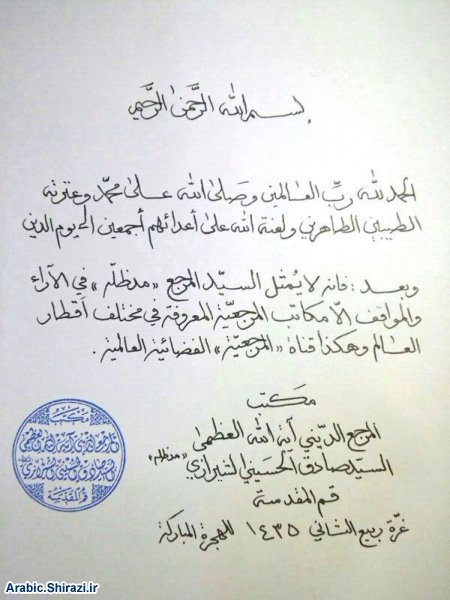 بسم الله الرَّحمنِ الرَّحيمِ
الحمد لله ربِّ العالمين وصَلى الله علىٰ محمّد وعترته
الطيبين الطاهرين ولعنة الله علىٰ أعدائهم أجمعين الى يوم الدين
وبعد : فانه لا يُمثل السيّد المرجع «مدظله» في الآراء
والمواقف الّا مكاتب المرجعيّة المعروفة في مختلف أقطار
العالم وهكذا قناة «المرجعيّة» الفضائية العالمية .
مكتب
المرجع الديني آية الله العظمىٰ
السيد صادق الحسيني الشيرازي «مدظله»
قم المقدسة
غرّة ربيع الثاني ١٤٣٥ للهجرة المباركة
مكتب
قم المقدسة
Arabic.Shirazi.ir